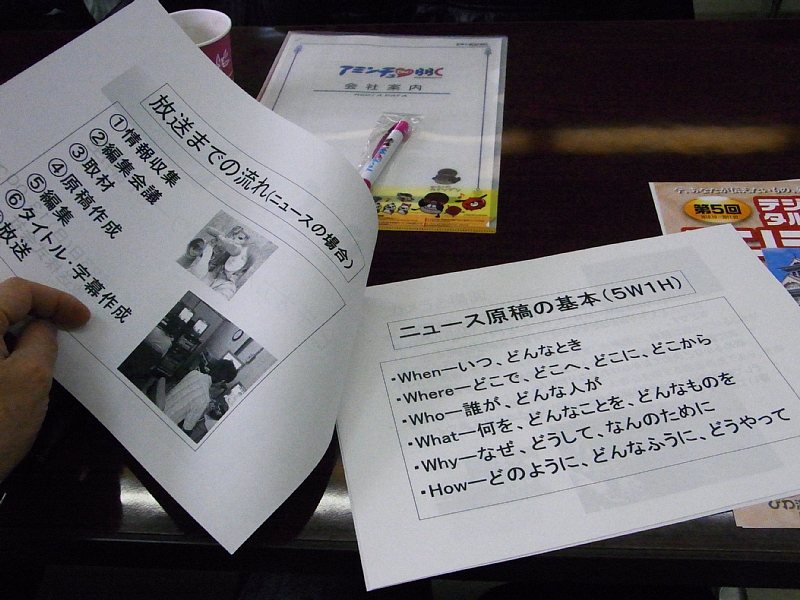 放送までの流れ(ニュースの場合)
①情報収集
②編集会議
③取材
④原稿作成
⑤編集
⑥タイトル・字幕作成
放送
会社案内
ニュース原稿の基本(5W1H)
・Whenーいつ、どんなとき
・Whereーどこで、どこへ、どこに、どこから
・Whoー誰が、どんな人が
・Whatー何を、どんなことを、どんなものを
・Whyーなぜ、どうして、なんのために
・Howーどのように、どんなふうに、どうやって
第5回
デジ
タル